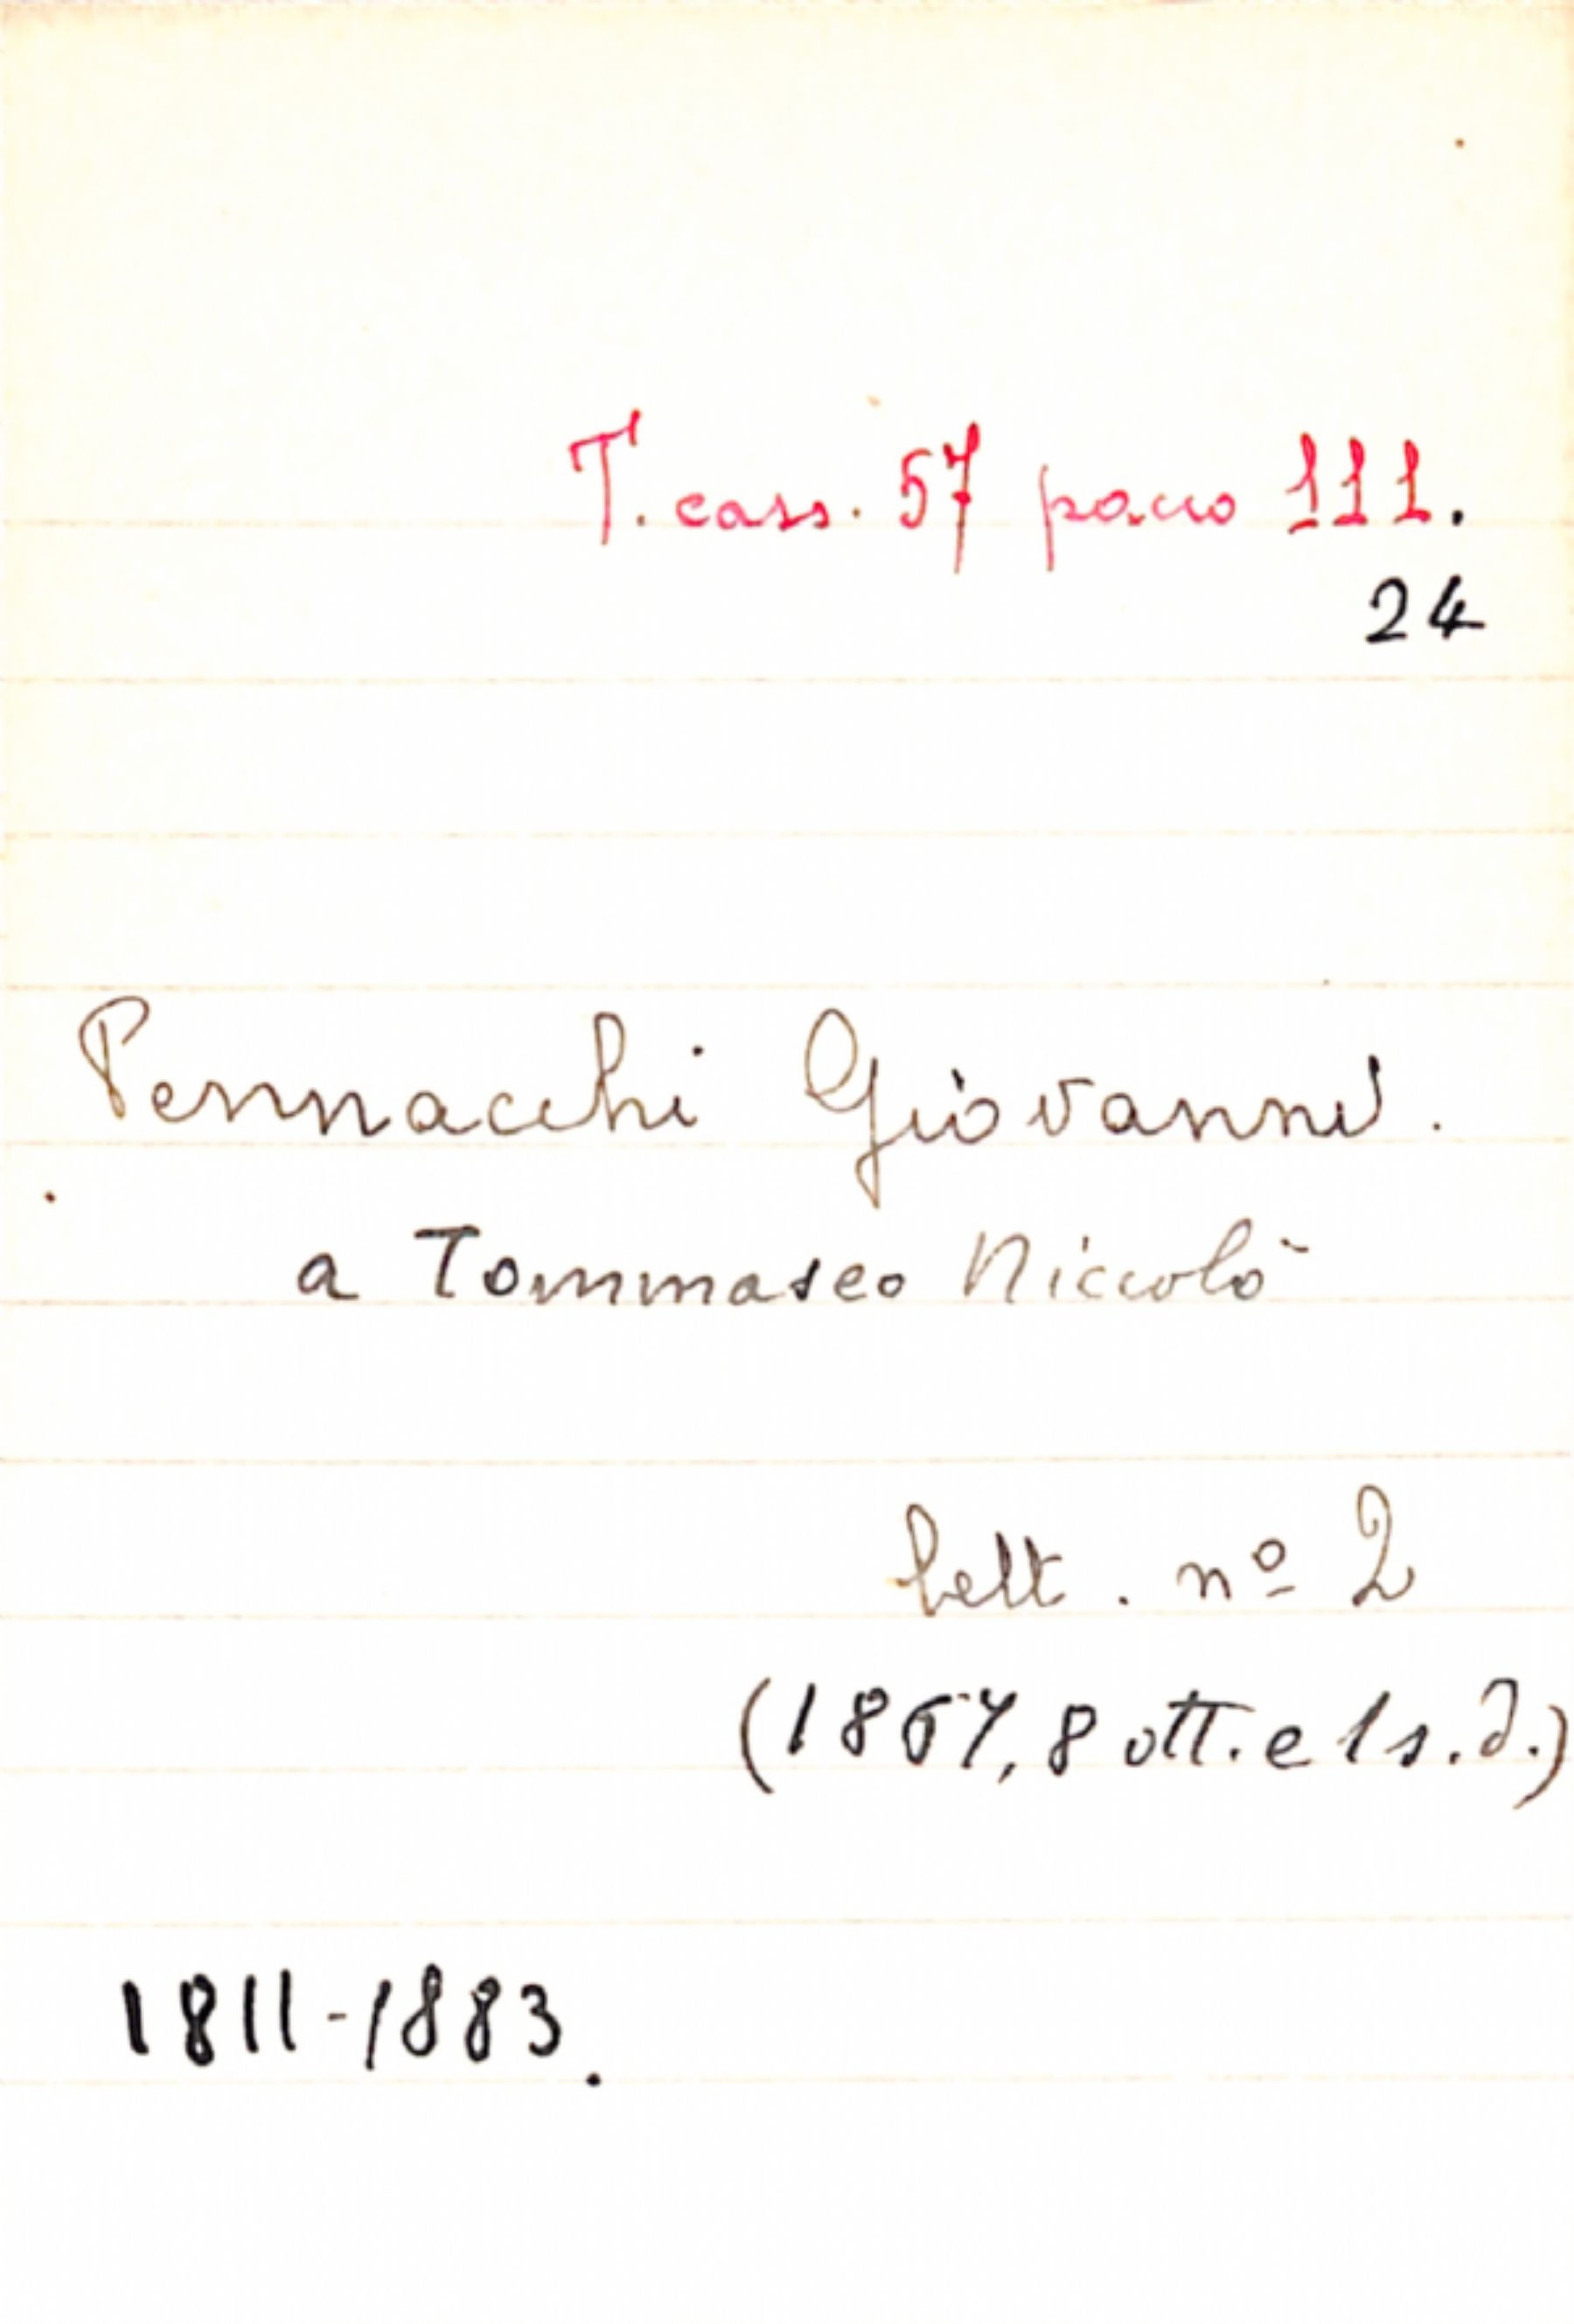 T. cass. 57 pacco 111.
24
Pennacchi Giovanni.
a Tommaseo Niccolò
lett. nº 2
(1867, 8 ott. e 1 s.d.)
1811-1883.